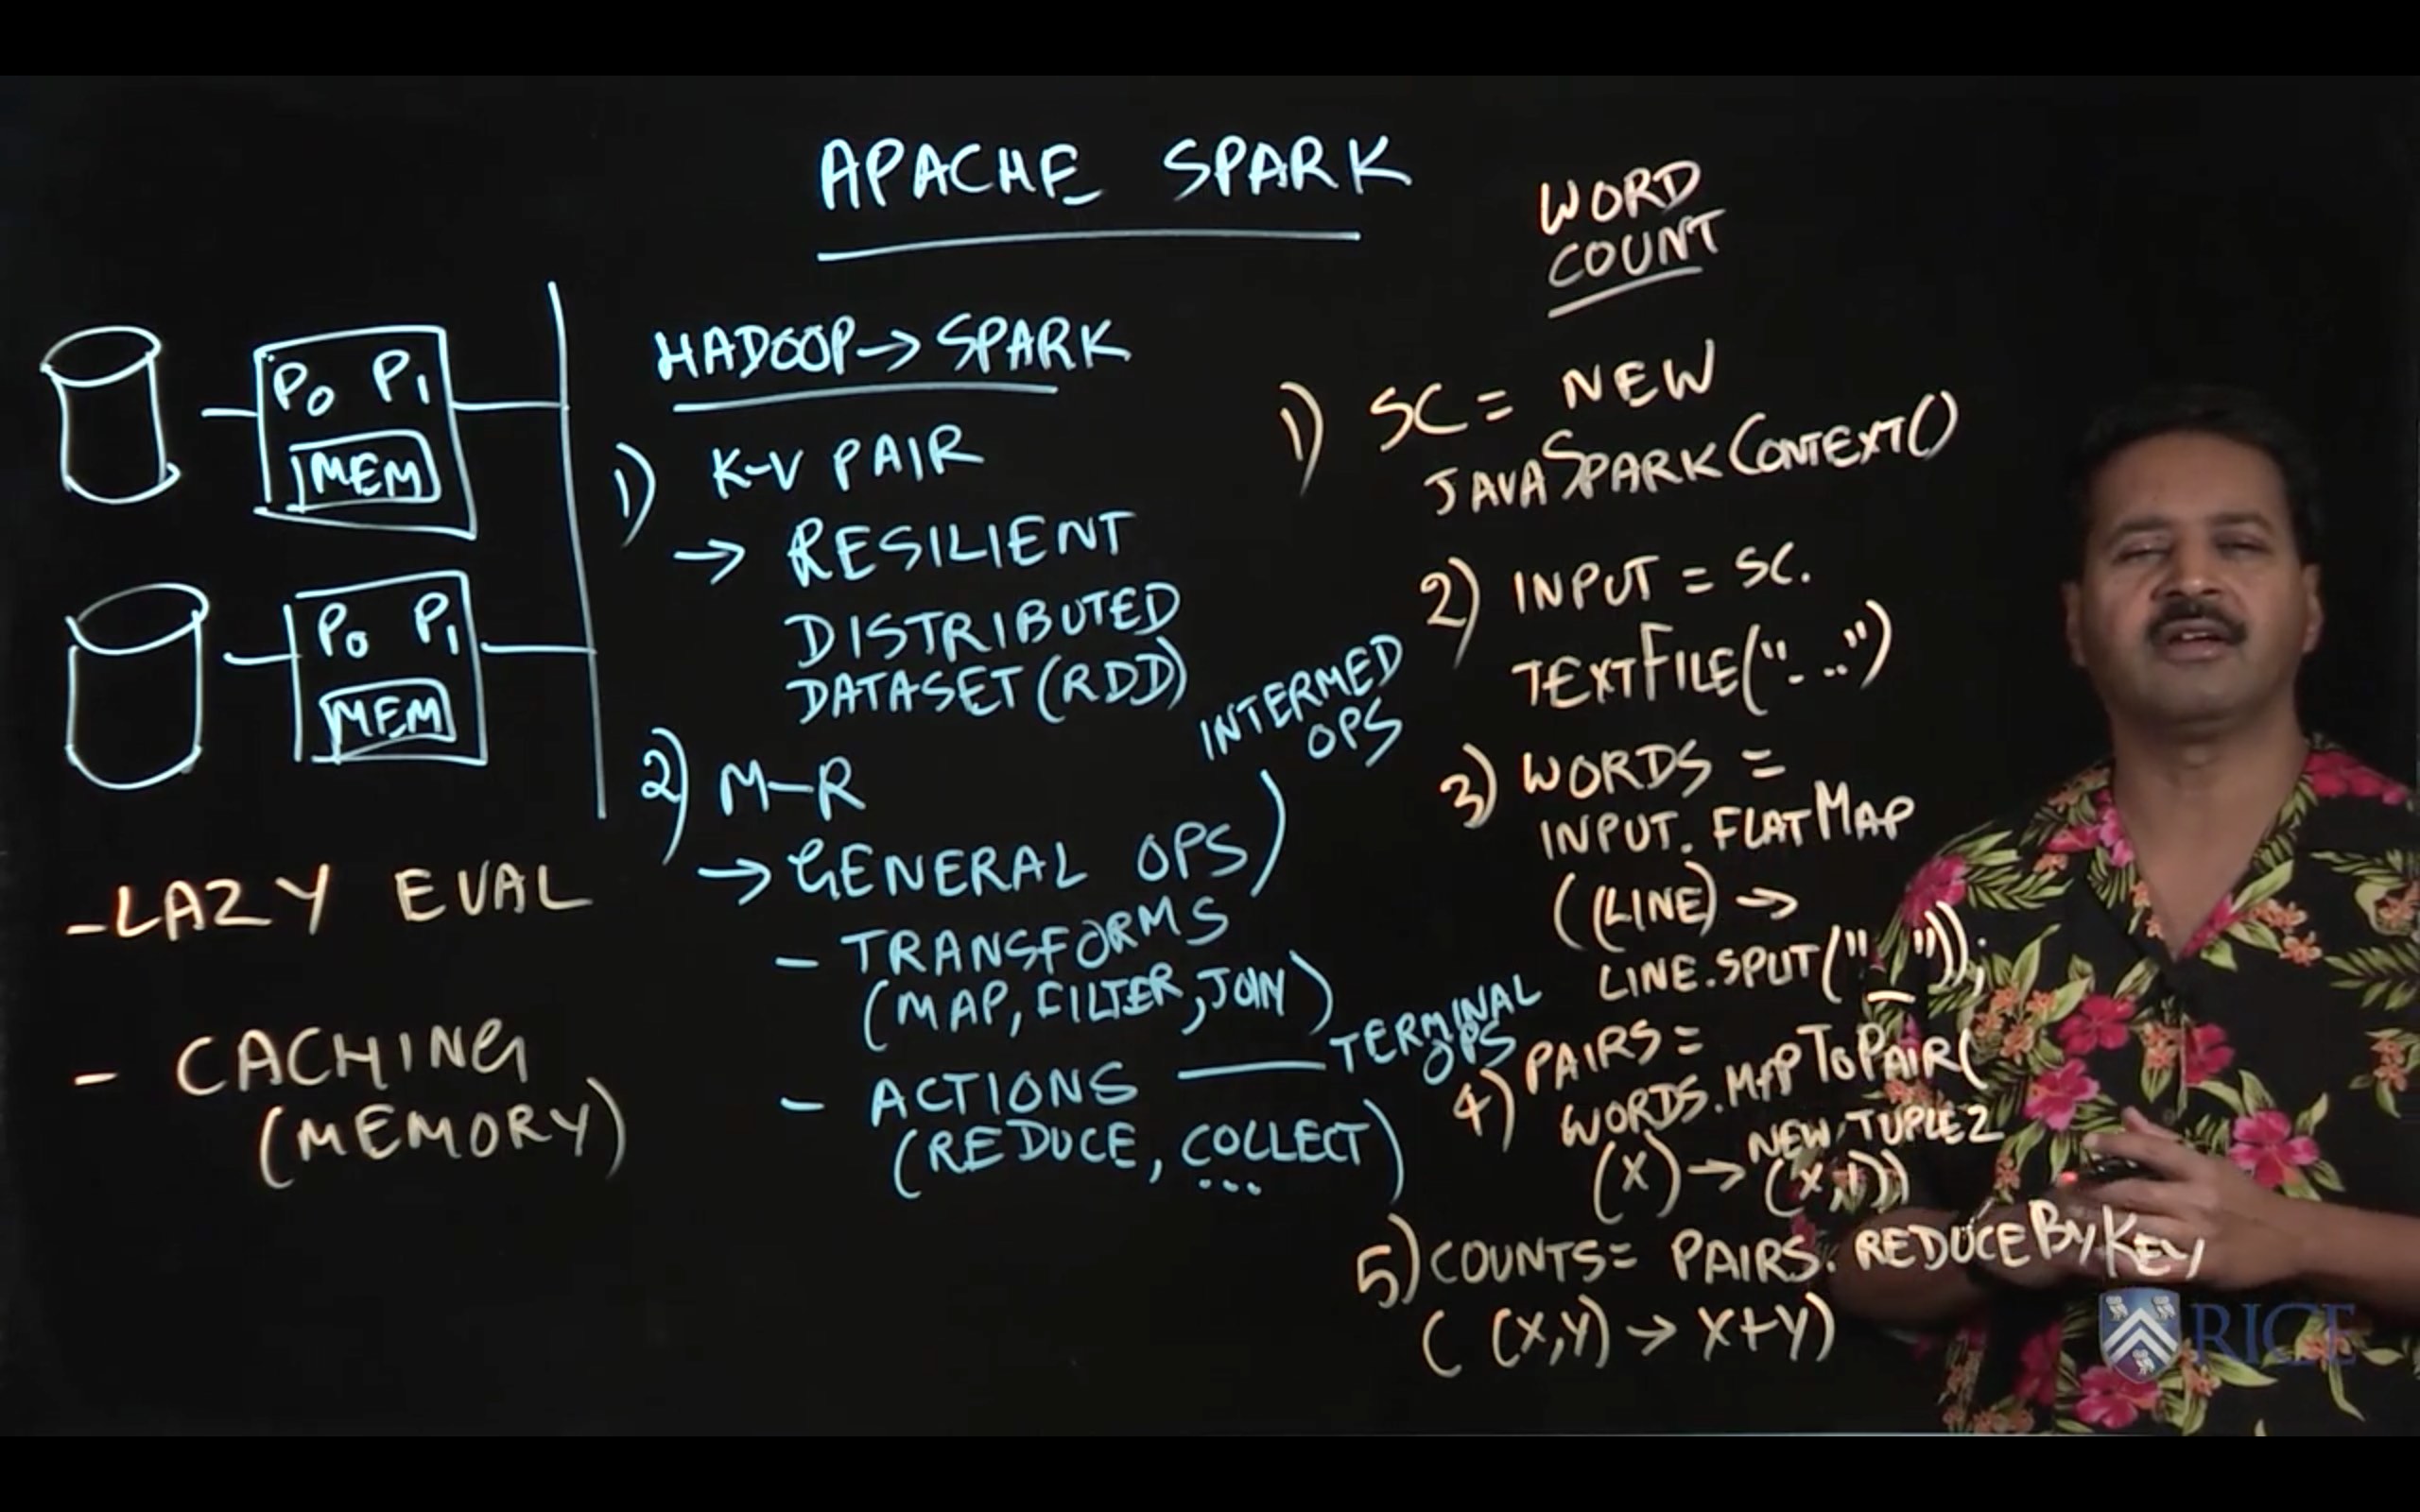 APACHE SPARK
P0 P1
MEM
P0 P1
MEM
-LAZY EVAL
- CACHING
(MEMORY)
HADOOP→SPARK
1) K-V PAIR
→ RESILIENT
DISTRIBUTED
DATASET (RDD)
2) M-R
→ GENERAL OPS
INTERMED
OPS
- TRANSFORMS
(MAP, FILTER, JOIN)
- ACTIONS
TERMINAL
OPS
(REDUCE, COLLECT)
...
WORD
COUNT
1) SC = NEW
JAVASPARKCONTEXT()
2) INPUT = SC.
TEXTFILE("...")
3) WORDS =
INPUT. FLATMAP
((LINE) →
LINE.SPLIT("_"));
4) PAIRS =
WORDS.MAPTOPAIR(
NEW TUPLE2
(X) → (X,1))
5) COUNTS = PAIRS. REDUCEBYKEY
( (X,Y) → X+Y)
RICE